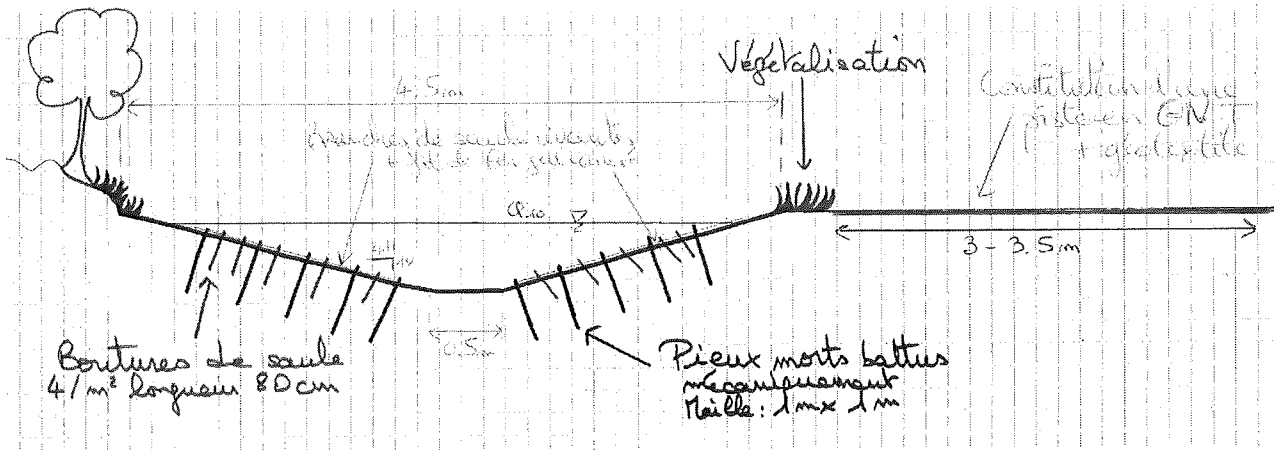 Végétalisation
4.5m
Constitution d'une
piste en GNT
+ géotextile
Branches de saule vivantes
+ fil de fer
Q10
4/1
3 - 3.5m
0.5m
Boutures de saule
4/m² longueur 80cm
Pieux morts battus
mécaniquement
Maille: 1m x 1m